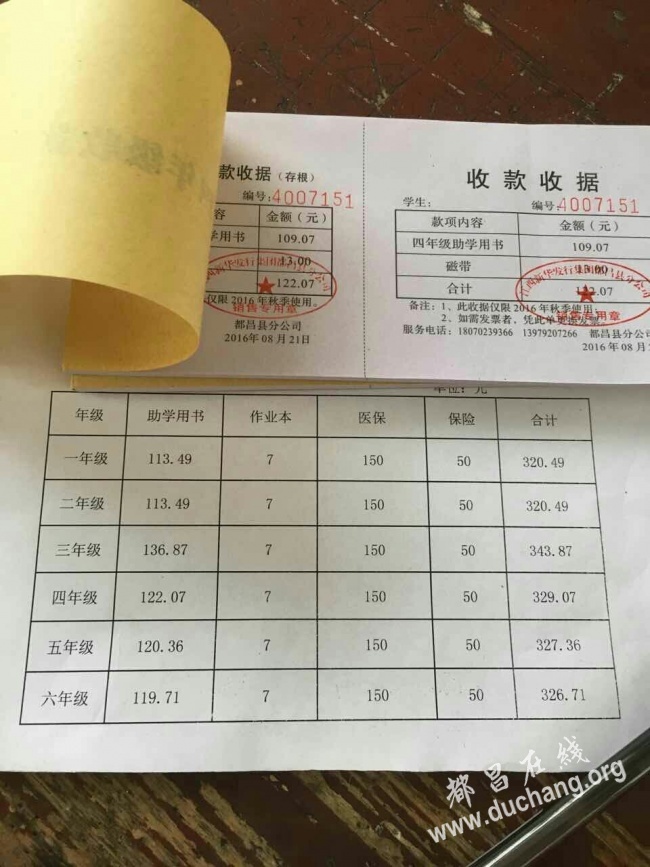 款收据（存根）
编号:4007151
容 金额（元）
学用书 109.07
13.00
122.07
仅限2016年秋季使用。
销售专用章
都昌县分公司
2016年08月21日
收款收据
学生: 编号:4007151
款项内容 金额（元）
四年级助学用书 109.07
磁带 13.00
合计 122.07
备注：1、此收据仅限2016年秋季使用。
2、如需发票者，凭此单换据发票。
服务电话：18070239366 13979207266
都昌县分公司
2016年08月21日
江西新华发行集团都昌县分公司
销售专用章
单位：元
年级 助学用书 作业本 医保 保险 合计
一年级 113.49 7 150 50 320.49
二年级 113.49 7 150 50 320.49
三年级 136.87 7 150 50 343.87
四年级 122.07 7 150 50 329.07
五年级 120.36 7 150 50 327.36
六年级 119.71 7 150 50 326.71
都昌在线
www.duchang.org